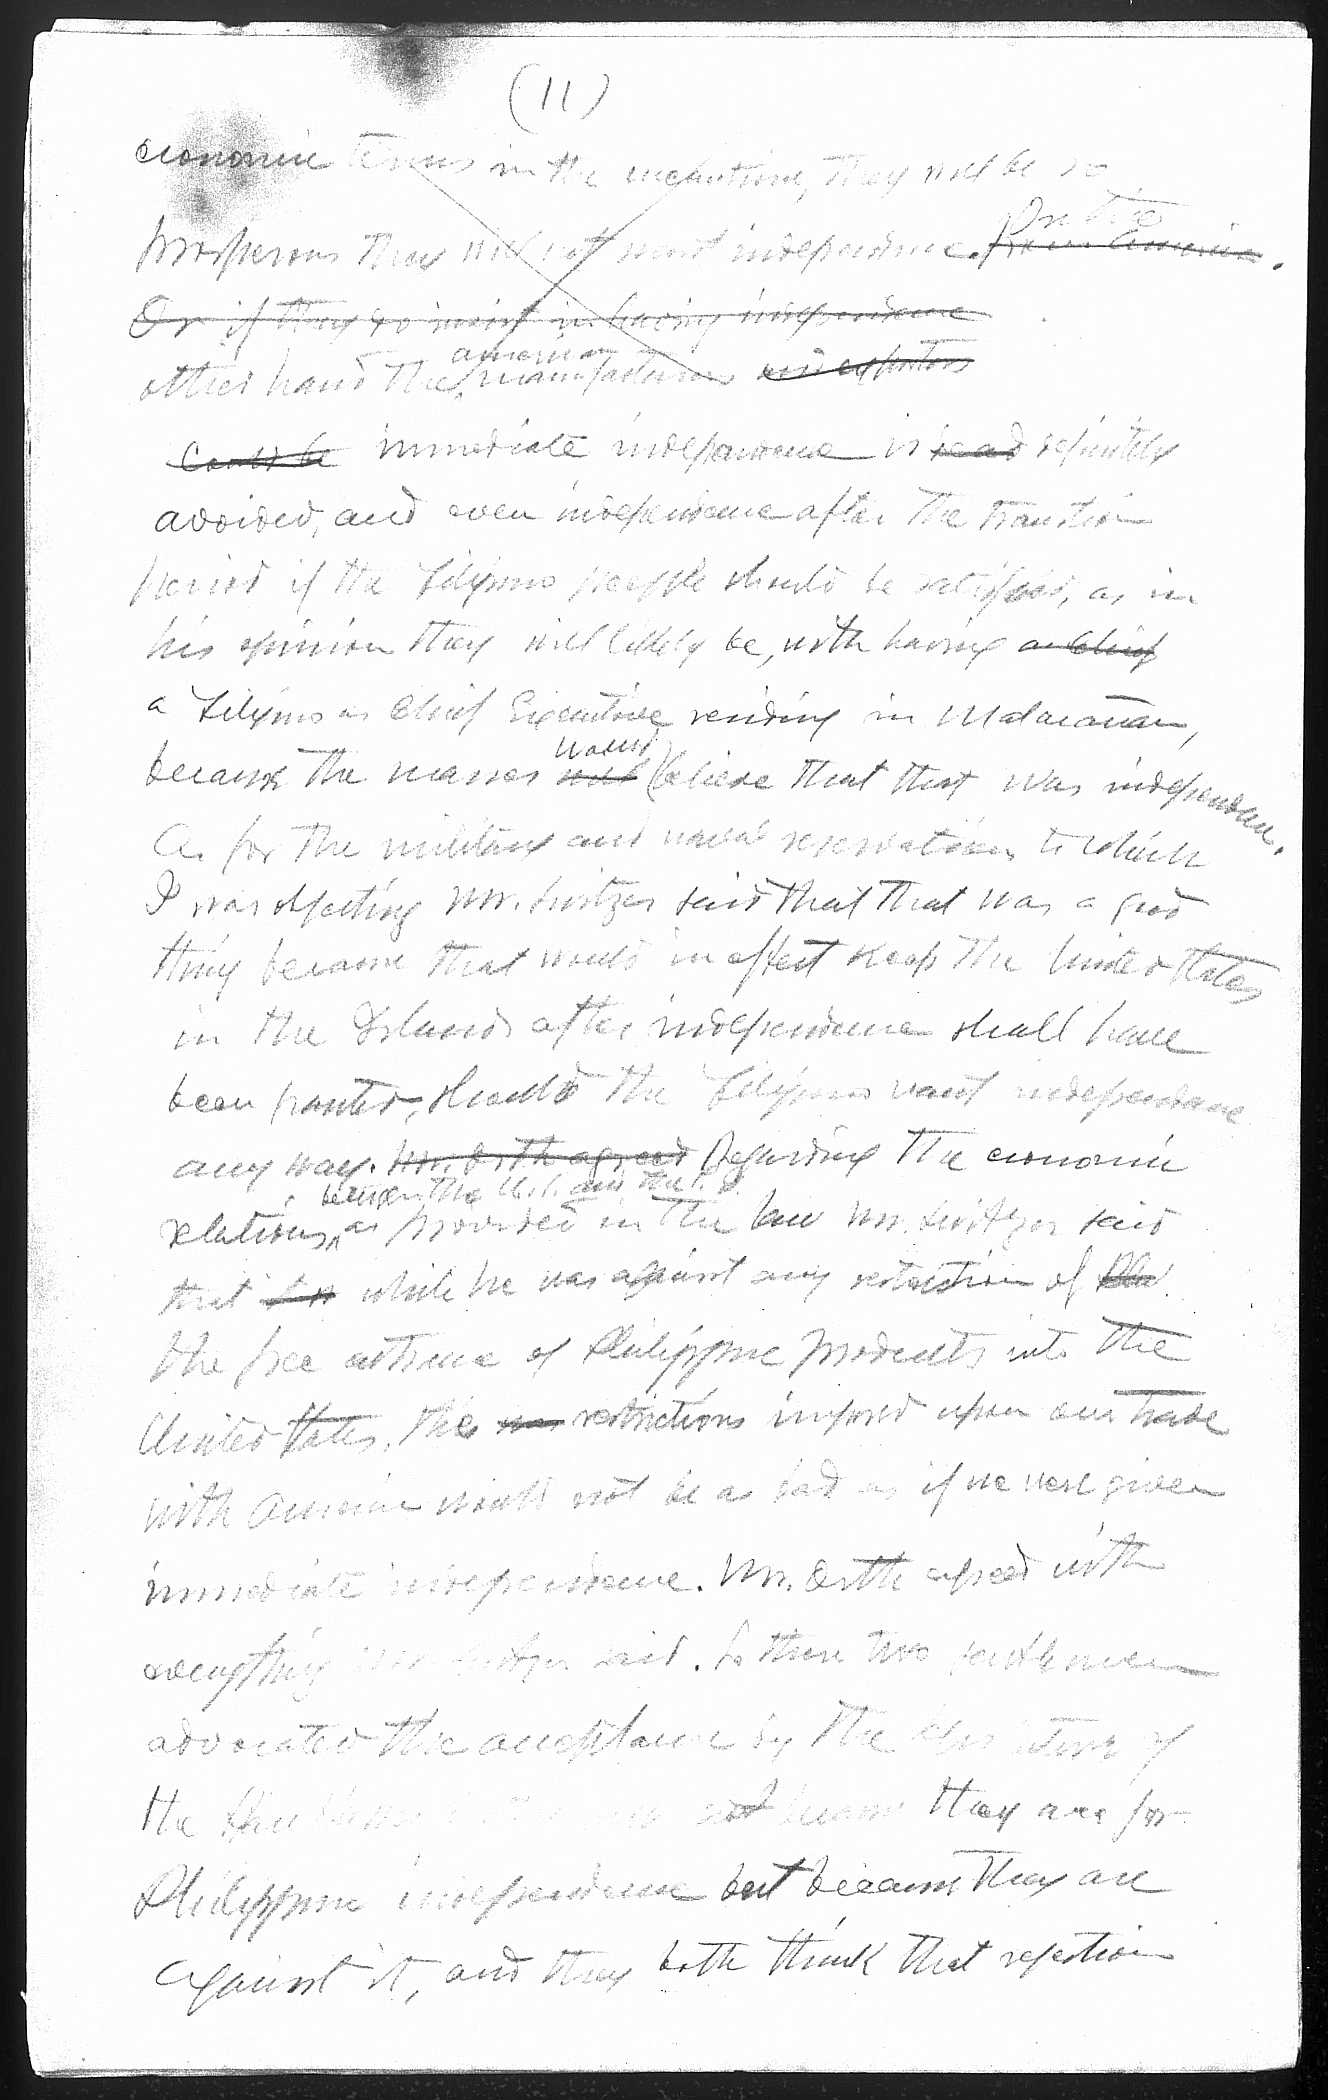 (11)
economic terms in the meantime, they will be so
prosperous they will not want independence. On the from America.
Or if they do insist in having independence
other hand the American manufacturers and exporters
could be immediate independence is read definitely
avoided, and even independence after the transition
period if the Filipino people should be satisfied, as in
his opinion they will likely be, with having a chief
a Filipino as Chief Executive residing in Malacañan,
because the masses will would believe that that was independence.
As for the military and naval reservations to which
I was objecting Mr. Switzer said that that was a good
thing because that would in effect keep the United States
in the Islands after independence shall have
been granted, should the Filipinos want independence
any way. Mr. Orth agreed Regarding the economic
relations, between the U.S. and the P.I. as provided in the law Mr. Switzer said
that while he was against any restriction of
the free entrance of Philippine products into the
United States, the restrictions imposed upon our trade
with America would not be as bad as if we were given
immediate independence. Mr. Orth agreed with
everything Mr. Switzer said. So these two gentlemen
advocated the acceptance by the Legislature of
the not because they are for
Philippine independence but because they are
against it, and they both think that rejection